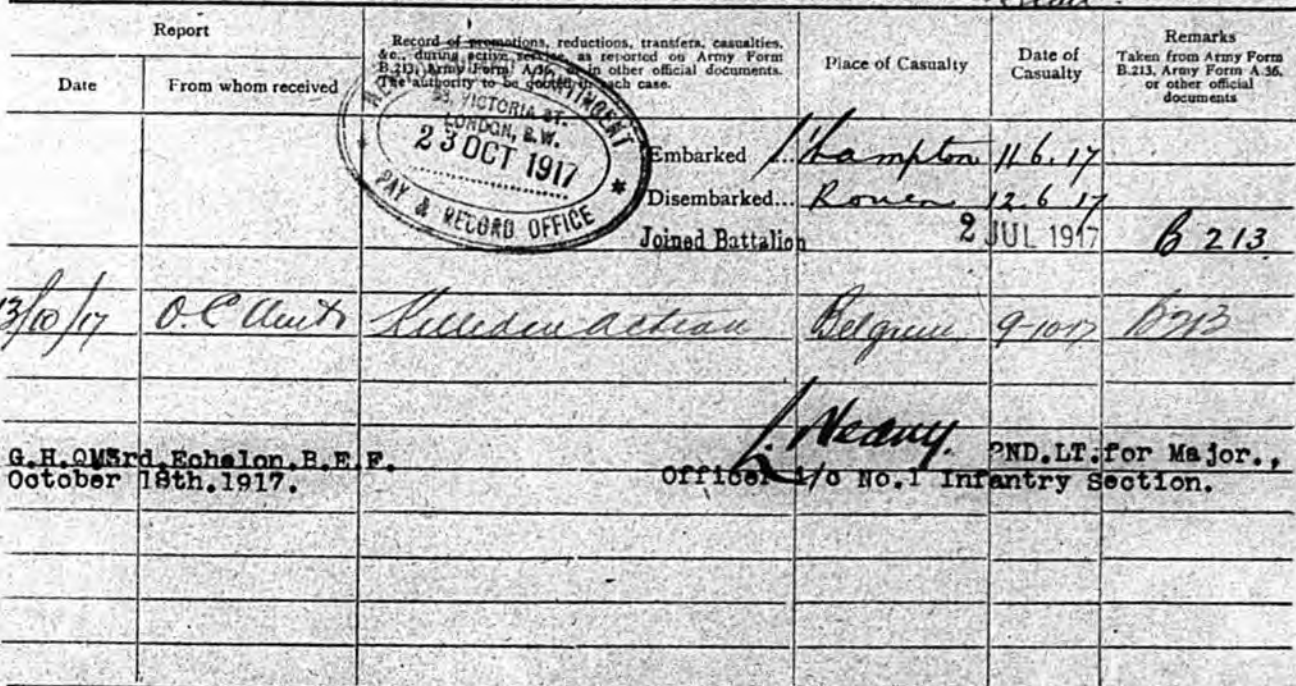 Report
Date
From whom received
Record of promotions, reductions, transfers, casualties,
&c., during active service, as reported on Army Form
B.213, Army Form A.36, or in other official documents.
The authority to be quoted in each case.
Place of Casualty
Date of
Casualty
Remarks
Taken from Army Form
B.213, Army Form A.36,
or other official
documents
VICTORIA ST.
LONDON, S.W.
23 OCT 1917
PAY & RECORD OFFICE
Embarked ... S'hampton 11.6.17
Disembarked... Rouen 12.6.17
Joined Battalion 2 JUL 1917 B 213
13/10/17 O.C. Unit Killed in action Belgium 9-10-17 B213
G.H.Q. 3rd.Echelon.B.E.F. 2ND.LT.for Major.,
October 18th.1917. Officer i/c No.1 Infantry Section.